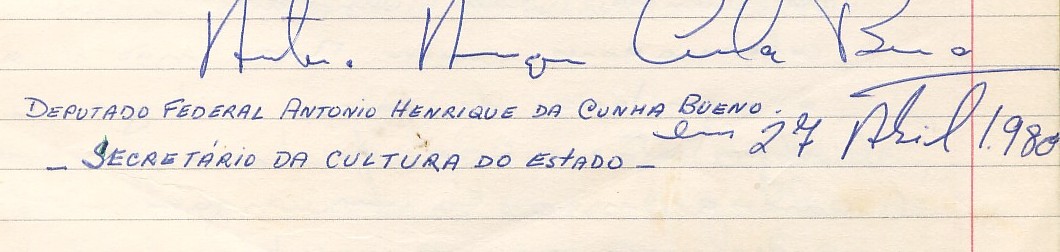 Antonio Henrique Cunha Bueno
DEPUTADO FEDERAL ANTONIO HENRIQUE DA CUNHA BUENO.
em 27 Abril 1.980
— SECRETÁRIO DA CULTURA DO ESTADO —